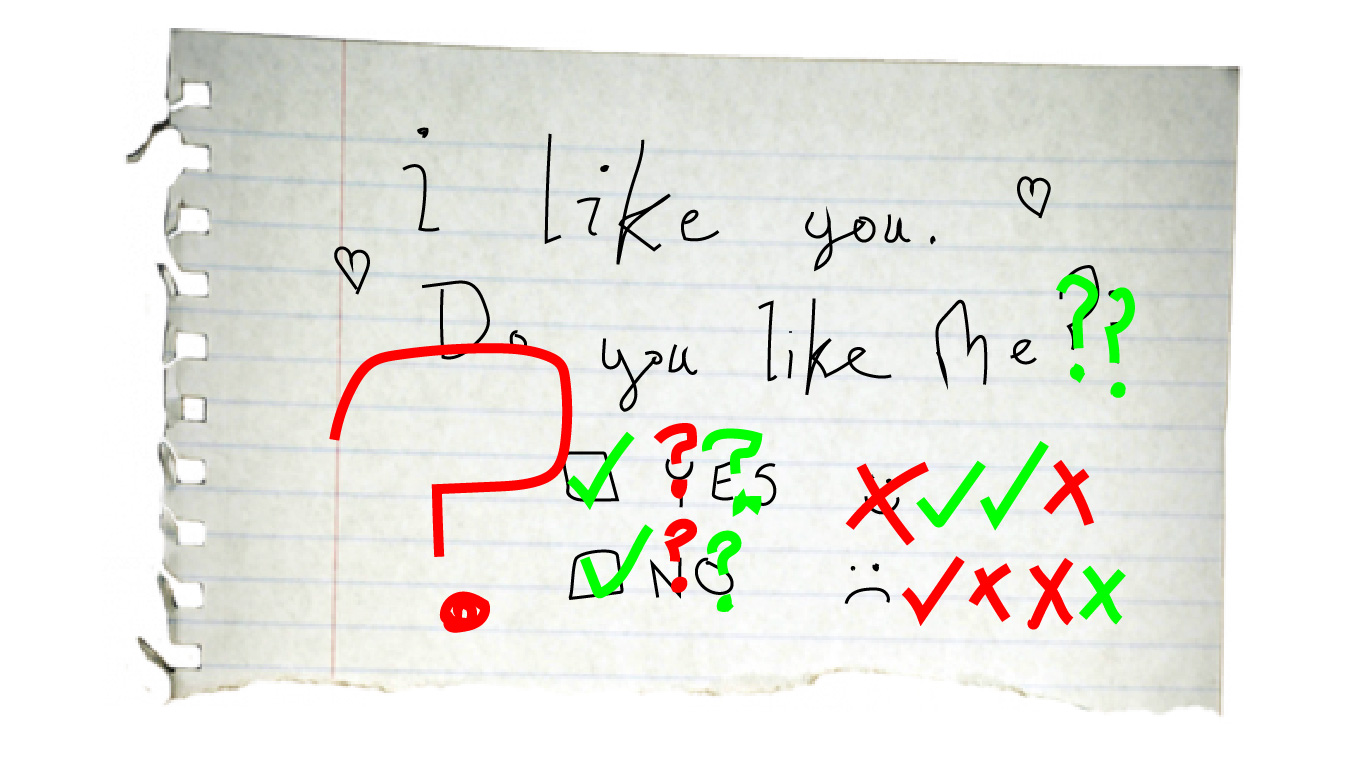 i like you.
Do you like Me ???
YES ??
NO ??
?